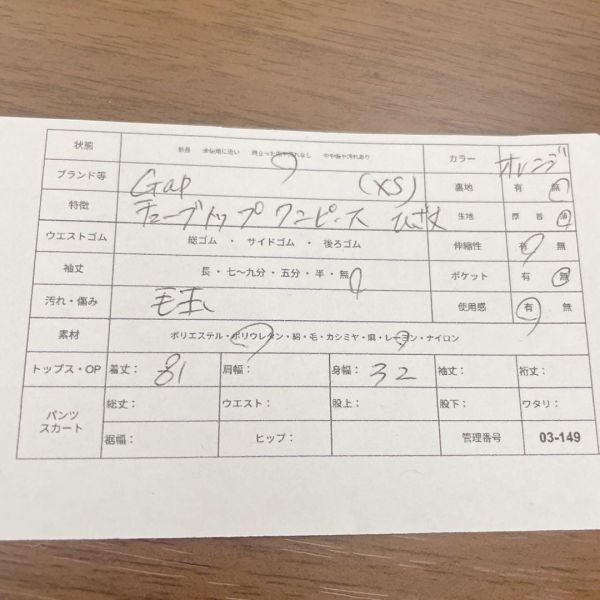 状態 新品 未使用に近い 目立った傷や汚れなし やや傷や汚れあり カラー オレンジ
ブランド等 Gap (XS) 裏地 有 無
特徴 チューブトップワンピース ひざ丈 生地 厚 普 薄
ウエストゴム 総ゴム ・ サイドゴム ・ 後ろゴム 伸縮性 有 無
袖丈 長・七〜九分・五分・半・無 ポケット 有 無
汚れ・傷み 毛玉 使用感 有 無
素材 ポリエステル・ポリウレタン・綿・毛・カシミヤ・麻・レーヨン・ナイロン
トップス・OP 着丈: 81 肩幅: 身幅: 32 袖丈: 裄丈:
パンツ スカート 総丈: ウエスト: 股上: 股下: ワタリ:
裾幅: ヒップ: 管理番号 03-149